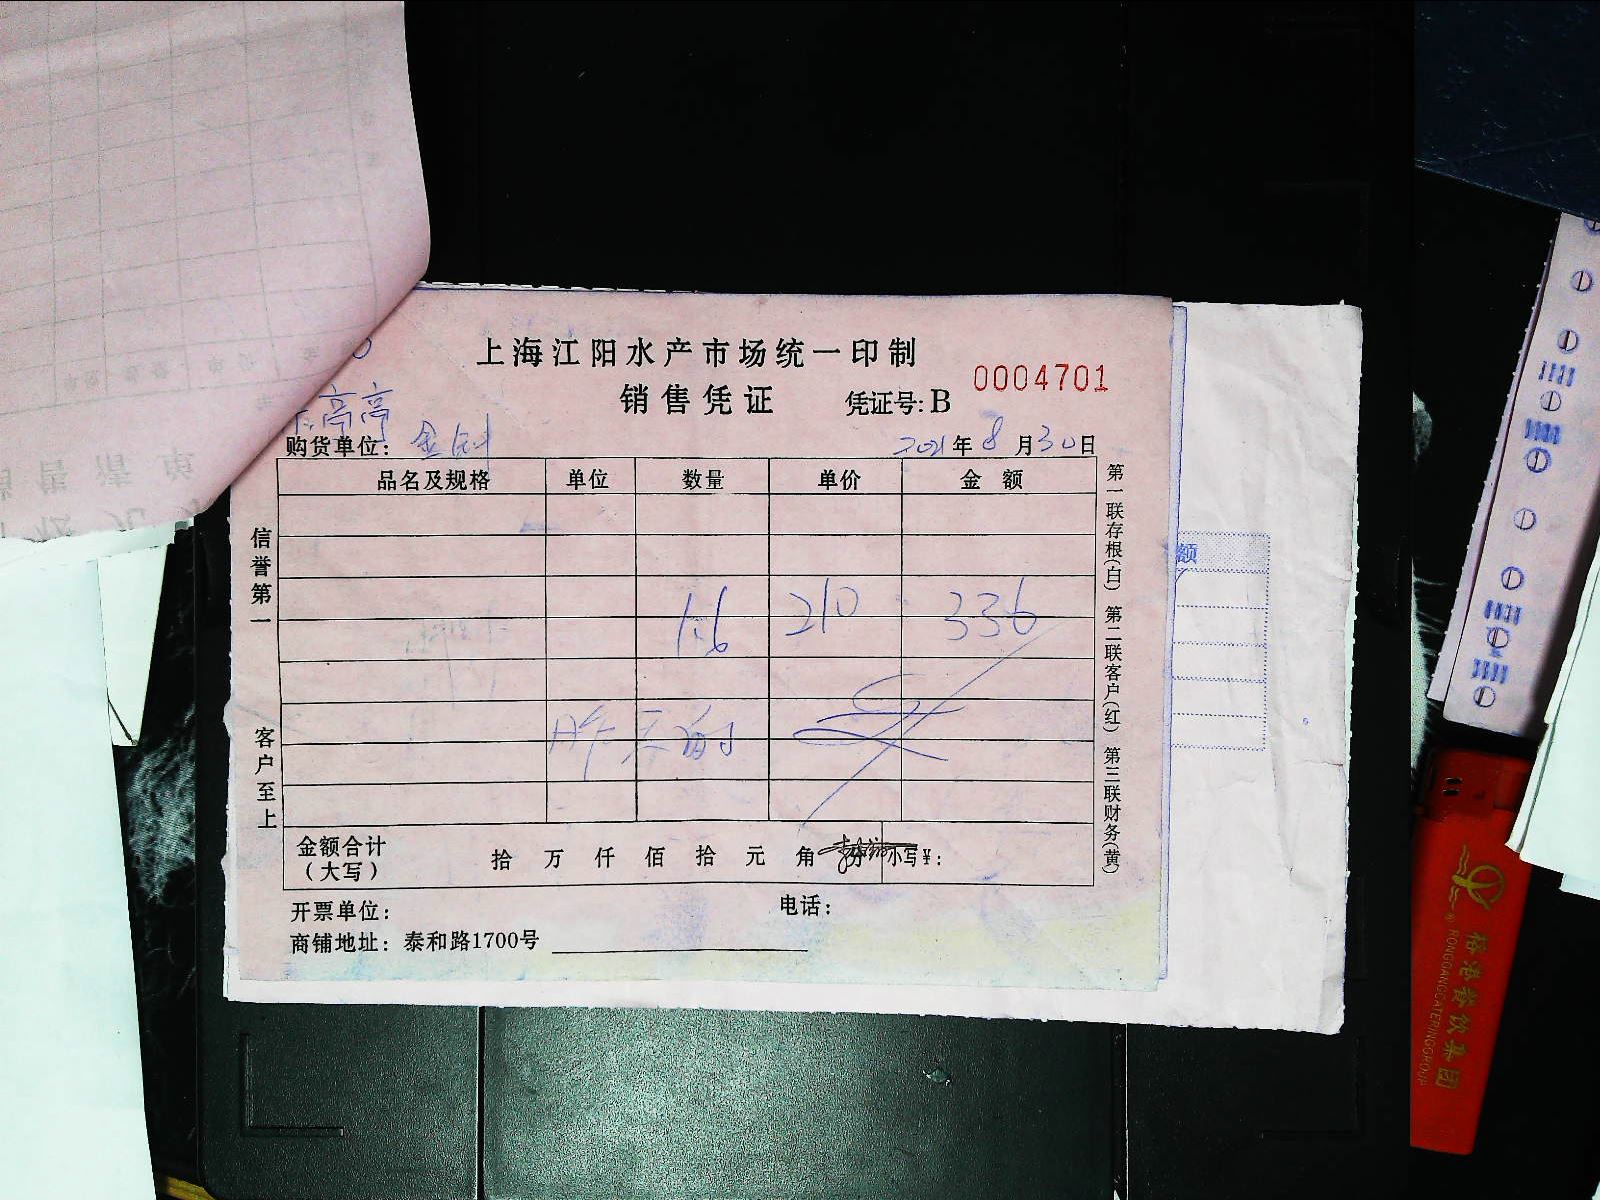 上海江阳水产市场统一印制
销售凭证
凭证号: B 0004701
高高
购货单位:
2021年8月30日
品名及规格 单位 数量 单价 金额
1.6 210 336
金额合计
(大写)
拾 万 仟 佰 拾 元 角 分 小写¥:
开票单位:
电话:
商铺地址: 泰和路1700号
信誉第一
客户至上
第一联存根(白) 第二联客户(红) 第三联财务(黄)
额
RONGGANGCATERINGGROUP